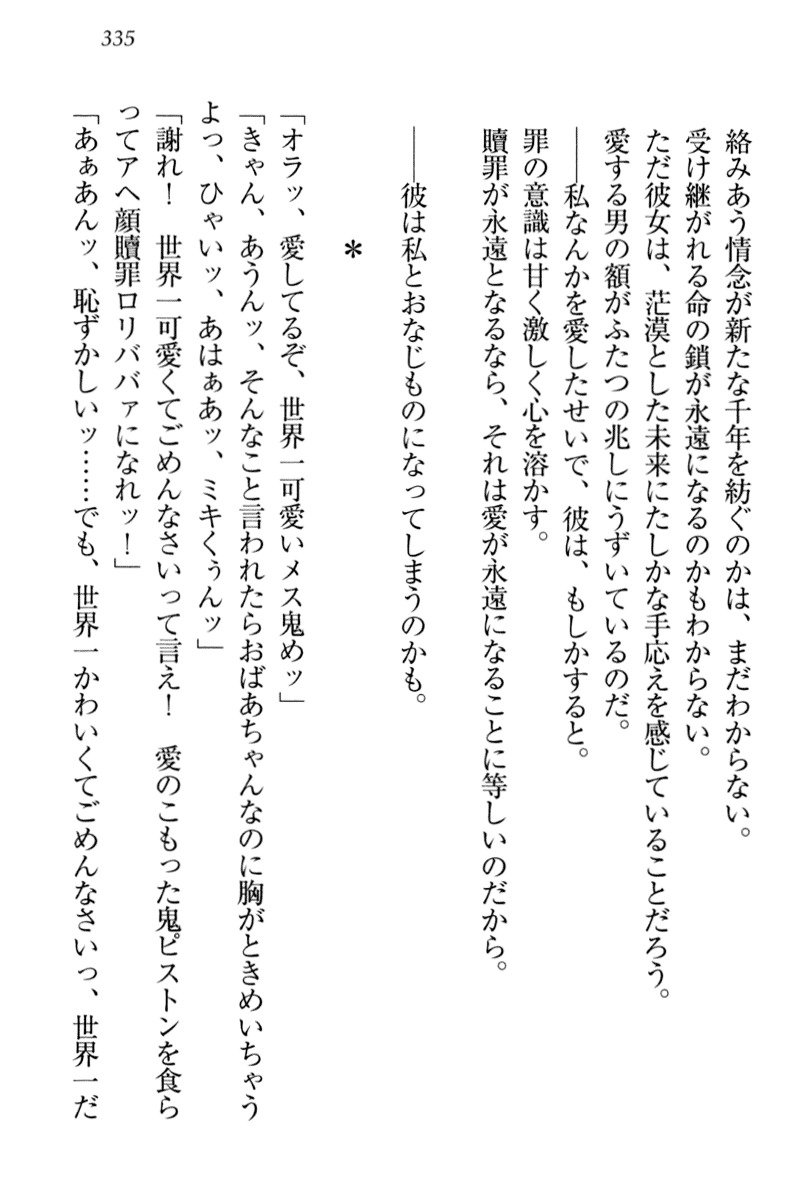 335
絡みあう情念が新たな千年を紡ぐのかは、まだわからない。
受け継がれる命の鎖が永遠になるのかもわからない。
ただ彼女は、茫漠とした未来にたしかな手応えを感じていることだろう。
愛する男の額がふたつの兆しにうずいているのだ。
――私なんかを愛したせいで、彼は、もしかすると。
罪の意識は甘く激しく心を溶かす。
贖罪が永遠となるなら、それは愛が永遠になることに等しいのだから。
――彼は私とおなじものになってしまうのかも。
*
「オラッ、愛してるぞ、世界一可愛いメス鬼めッ」
「きゃん、あうんッ、そんなこと言われたらおばあちゃんなのに胸がときめいちゃう
よっ、ひゃいッ、あはぁあッ、ミキくぅんッ」
「謝れ！　世界一可愛くてごめんなさいって言え！　愛のこもった鬼ピストンを食ら
ってアヘ顔贖罪ロリババァになれッ！」
「あぁあんッ、恥ずかしいッ……でも、世界一かわいくてごめんなさいっ、世界一だ